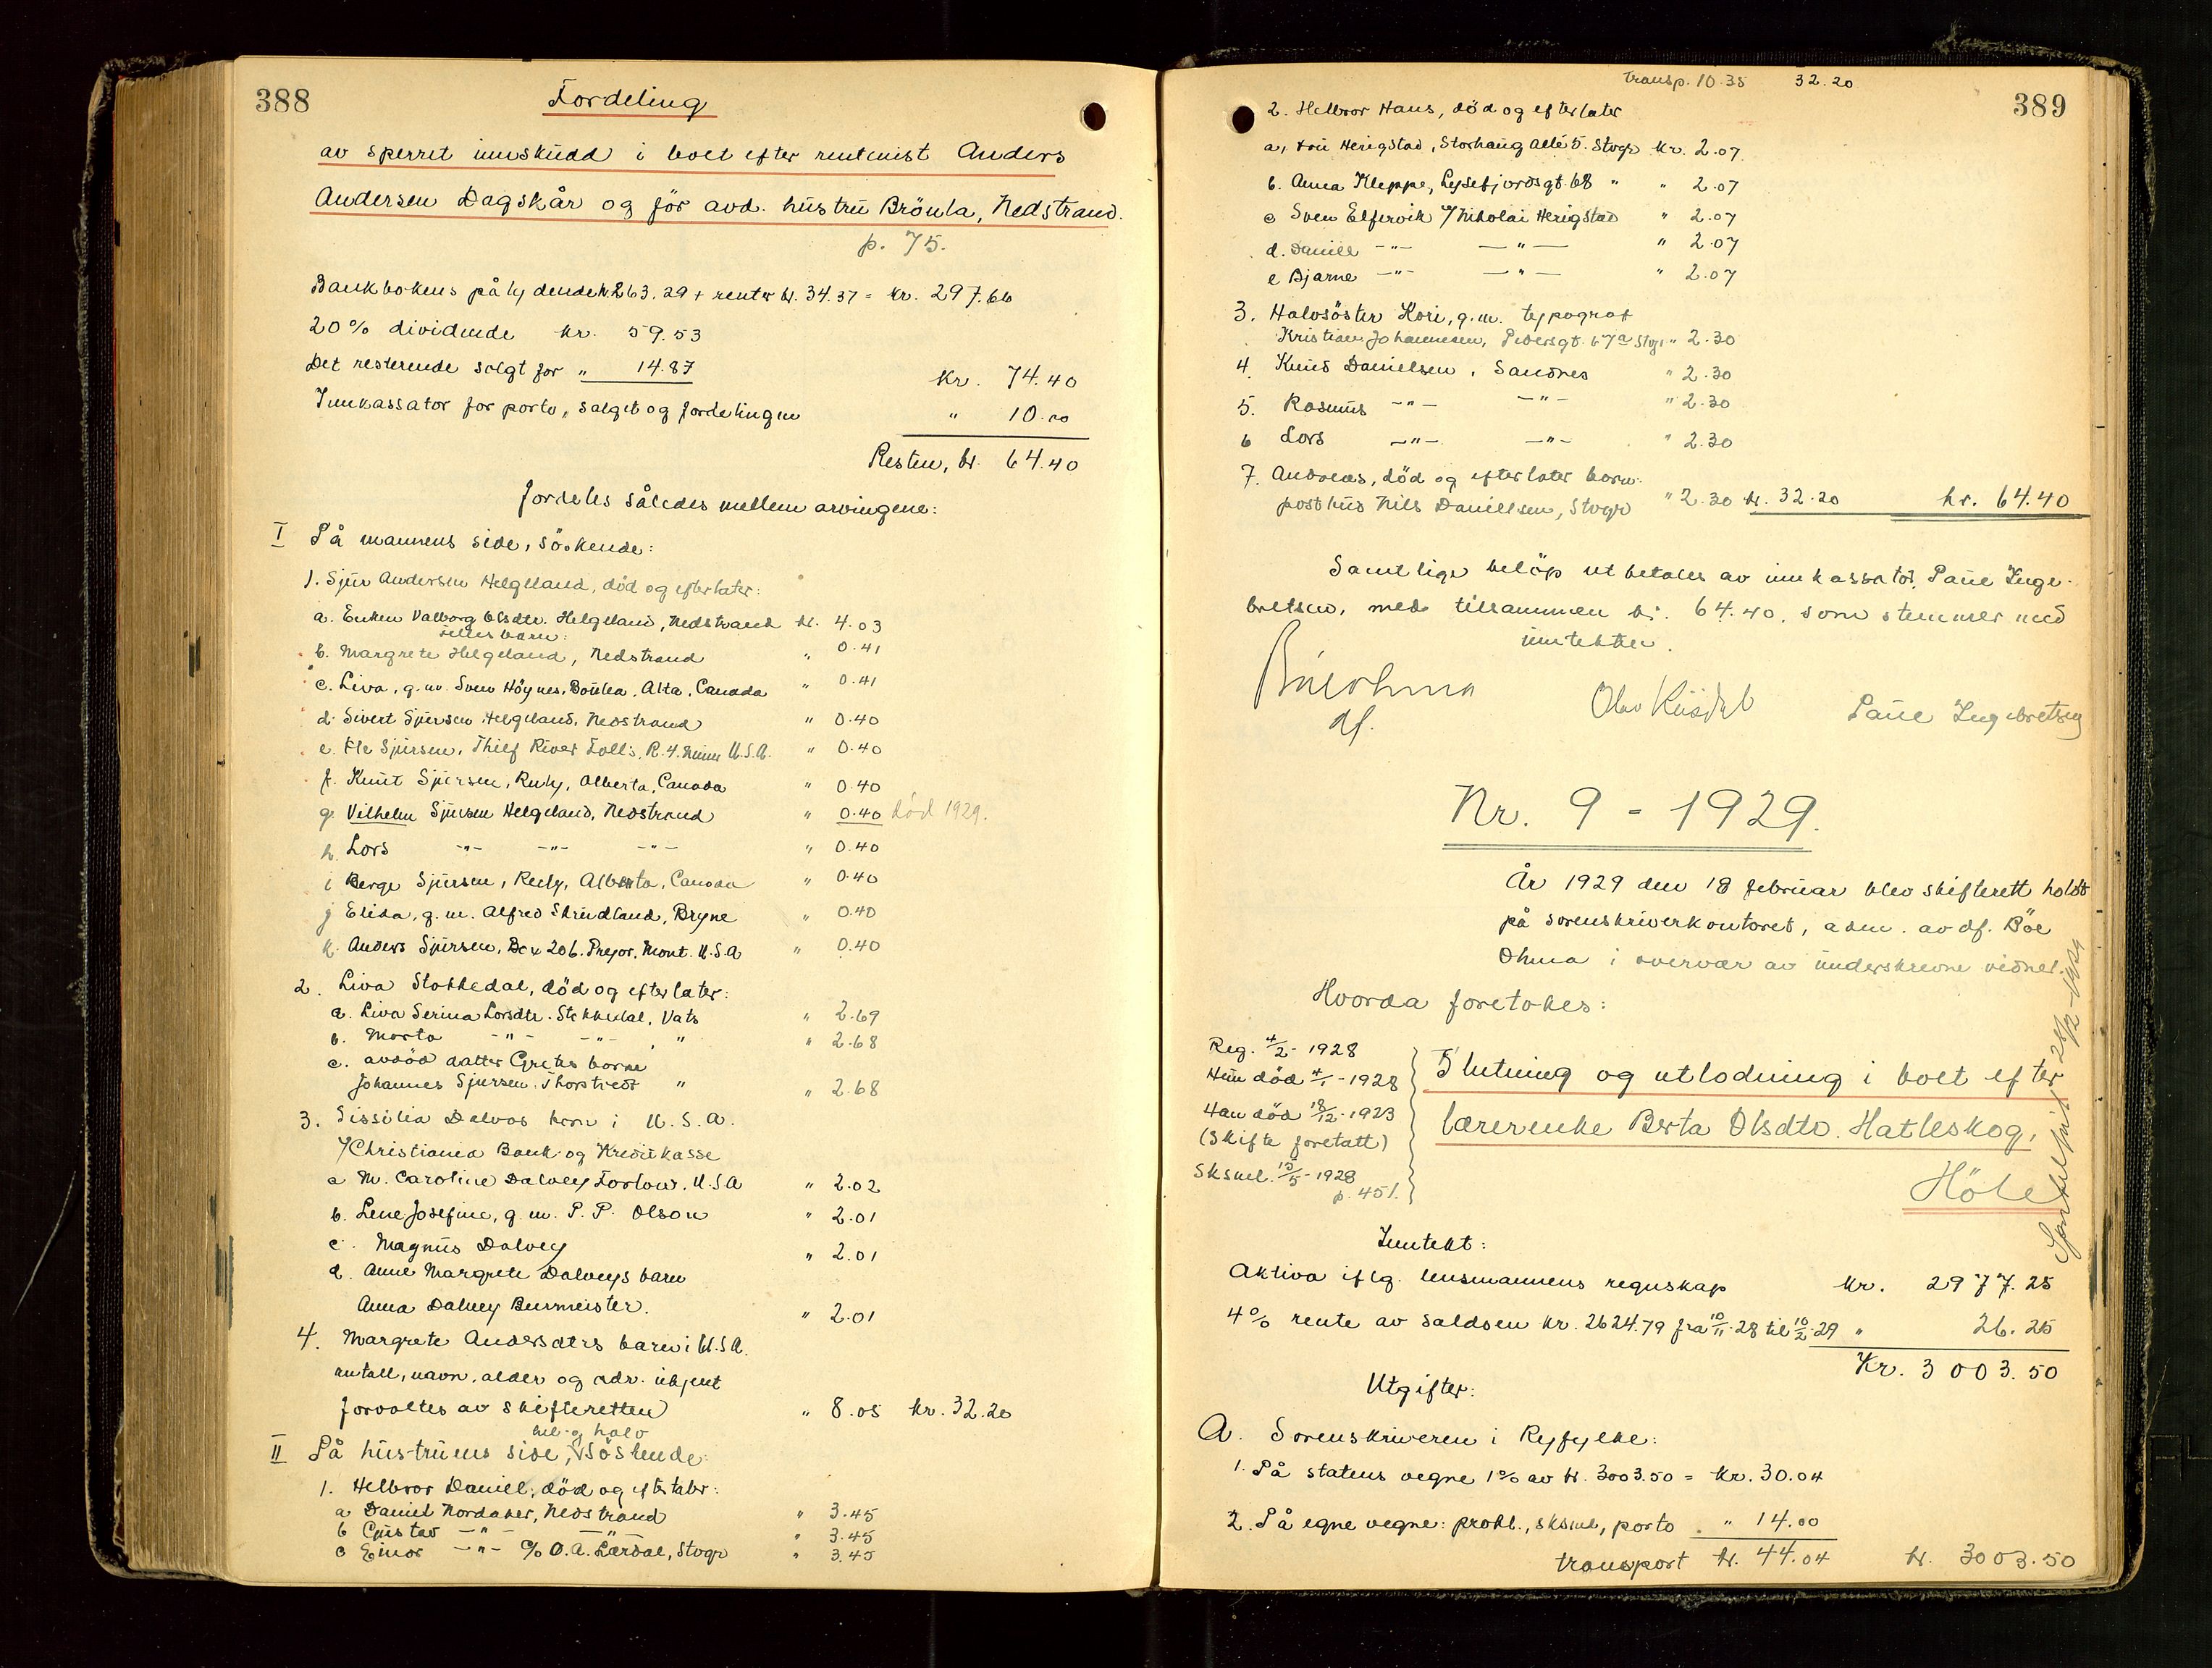 388
Fordeling
av sperret innskudd i boet efter rentenist Anders
Andersen Dagskår og før avd. hustru Brönla, Nedstrand.
p. 75.
Bankbokens pålydende kr. 263.29 + renter kr. 34.37 = kr. 297.66
20% dividende kr. 59.53
Det resterende solgt for " 14.87 kr. 74.40
Innkassator for porto, salget og fordelingen " 10.00
Resten, kr. 64.40
fordeles således mellem arvingene:
I På mannens side, söskende:
1. Sjur Andersen Helgeland, död og efterlater:
a. Enken Valborg Olsdtr. Helgeland, Nedstrand kr. 4.03
felles barn:
b. Margrete Helgeland, Nedstrand " 0.41
c. Liva, g.m. Sven Höynes, Alta, Canada " 0.41
d. Sivert Sjursen Helgeland, Nedstrand " 0.40
e. Ole Sjursen, Thief River Falls, R.4. Minn U.S.A. " 0.40
f. Knut Sjursen, Ruby, Alberta, Canada " 0.40
g. Vilhelm Sjursen Helgeland, Nedstrand " 0.40 död 1929.
h. Lars -"- -"- -"- " 0.40
i Berge Sjursen, Alberta, Canada " 0.40
j Elida, g.m. Alfred Skrudland, Bryne " 0.40
k. Anders Sjursen, Box 206. Pryor, Mont. U.S.A " 0.40
2. Liva Stokkedal, död og efterlater:
a. Liva Serina Larsdtr. Stokkedal, Vats " 2.69
b. Marta -"- -"- " " 2.68
c. avdöd datter Gretes barn
Johannes Sjursen Thorstvedt " " 2.68
3. Sissilia Dalvas barn i U.S.A.
℅ Christiania Bank og Kreditkasse
a M. Caroline Dalvey Forlow. U.S.A " 2.02
b. Lene Josefine, g.m. P.P. Olson " 2.01
c. Magnus Dalvey " 2.01
d. Anne Margrete Dalveys barn
Anna Dalvey Burmeister. " 2.01
4. Margrete Andersdtrs barn i U.S.A.
antall, navn, alder og adr. ukjent
forvaltes av skifteretten " 8.05 kr. 32.20
hel- og halv
II På hustruens side, söskende:
1. Helbror Daniel, död og efterlater:
a Daniel Nordaker, Nedstrand " 3.45
b Gustav -"- -"- " 3.45
c Einar -"- ℅ O.A. Lærdal, Stvgr " 3.45
389
transp. 10.35 32.20
2. Helbror Hans, död og efterlater
a, Herigstad, Storhaug allé 5. Stvgr kr. 2.07
b. Anna Kleppe, Lysefjordsgt. 68 " " 2.07
c Sven Elfervik ℅ Nikolai Herigstad " 2.07
d. Daniel -"- -"- " 2.07
e Bjarne -"- -"- " 2.07
3. Halvsöster Kari, g.m. typograf
Kristian Johannesen, Pedersgt. 67a Stvgr " 2.30
4. Knud Danielsen, Sandnes " 2.30
5. Rasmus -"- -"- " 2.30
6 Lars -"- -"- " 2.30
7. Andreas, död og efterlater barn:
posthus Nils Danielsen, Stvgr " 2.30 kr. 32.20 kr. 64.40
Samtlige belöp utbetales av innkassator Paul Inge-
bretsen, med tilsammen kr. 64.40, som stemmer med
inntekten.
Böe Ohma
df.
Paul Ingebretsen
Nr. 9 - 1929.
År 1929 den 18 februar blev skifterett holdt
på sorenskriverkontoret, adm. av df. Böe
Ohma i overvær av underskrevne vidner.
Hvorda foretokes:
Reg. 4/2- 1928
Hun död 4/1 - 1928
Han död 18/12 - 1923
(skifte foretatt)
Sksml. 15/5 - 1928
p. 451.
Slutning og utlodning i boet efter
lærerenke Berta Olsdtr. Hatleskog,
Höle
Inntekt:
Aktiva iflg. lensmannens regnskap kr. 2977.25
4% rente av saldoen kr. 2624.79 fra 10/11-28 til 10/2-29 " 26.25
Kr. 3003.50
Utgifter:
A. Sorenskriveren i Ryfylke:
1. På statens vegne 1% av kr. 3003.50 = kr. 30.04
2. På egne vegne: prokl., sksml, porto " 14.00
transport kr. 44.04 kr. 3003.50